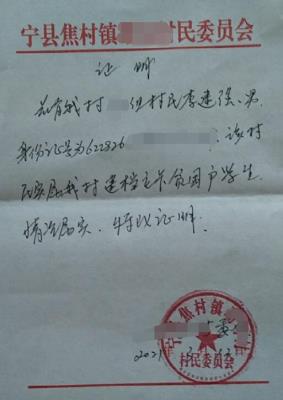 宁县焦村镇 村民委员会
证明
兹有我村 组村民李建强、男
身份证号为622826 ，该村
民实属我村建档立卡贫困户学生。
情况属实，特以证明。
2021
宁县焦村镇
村民委员会